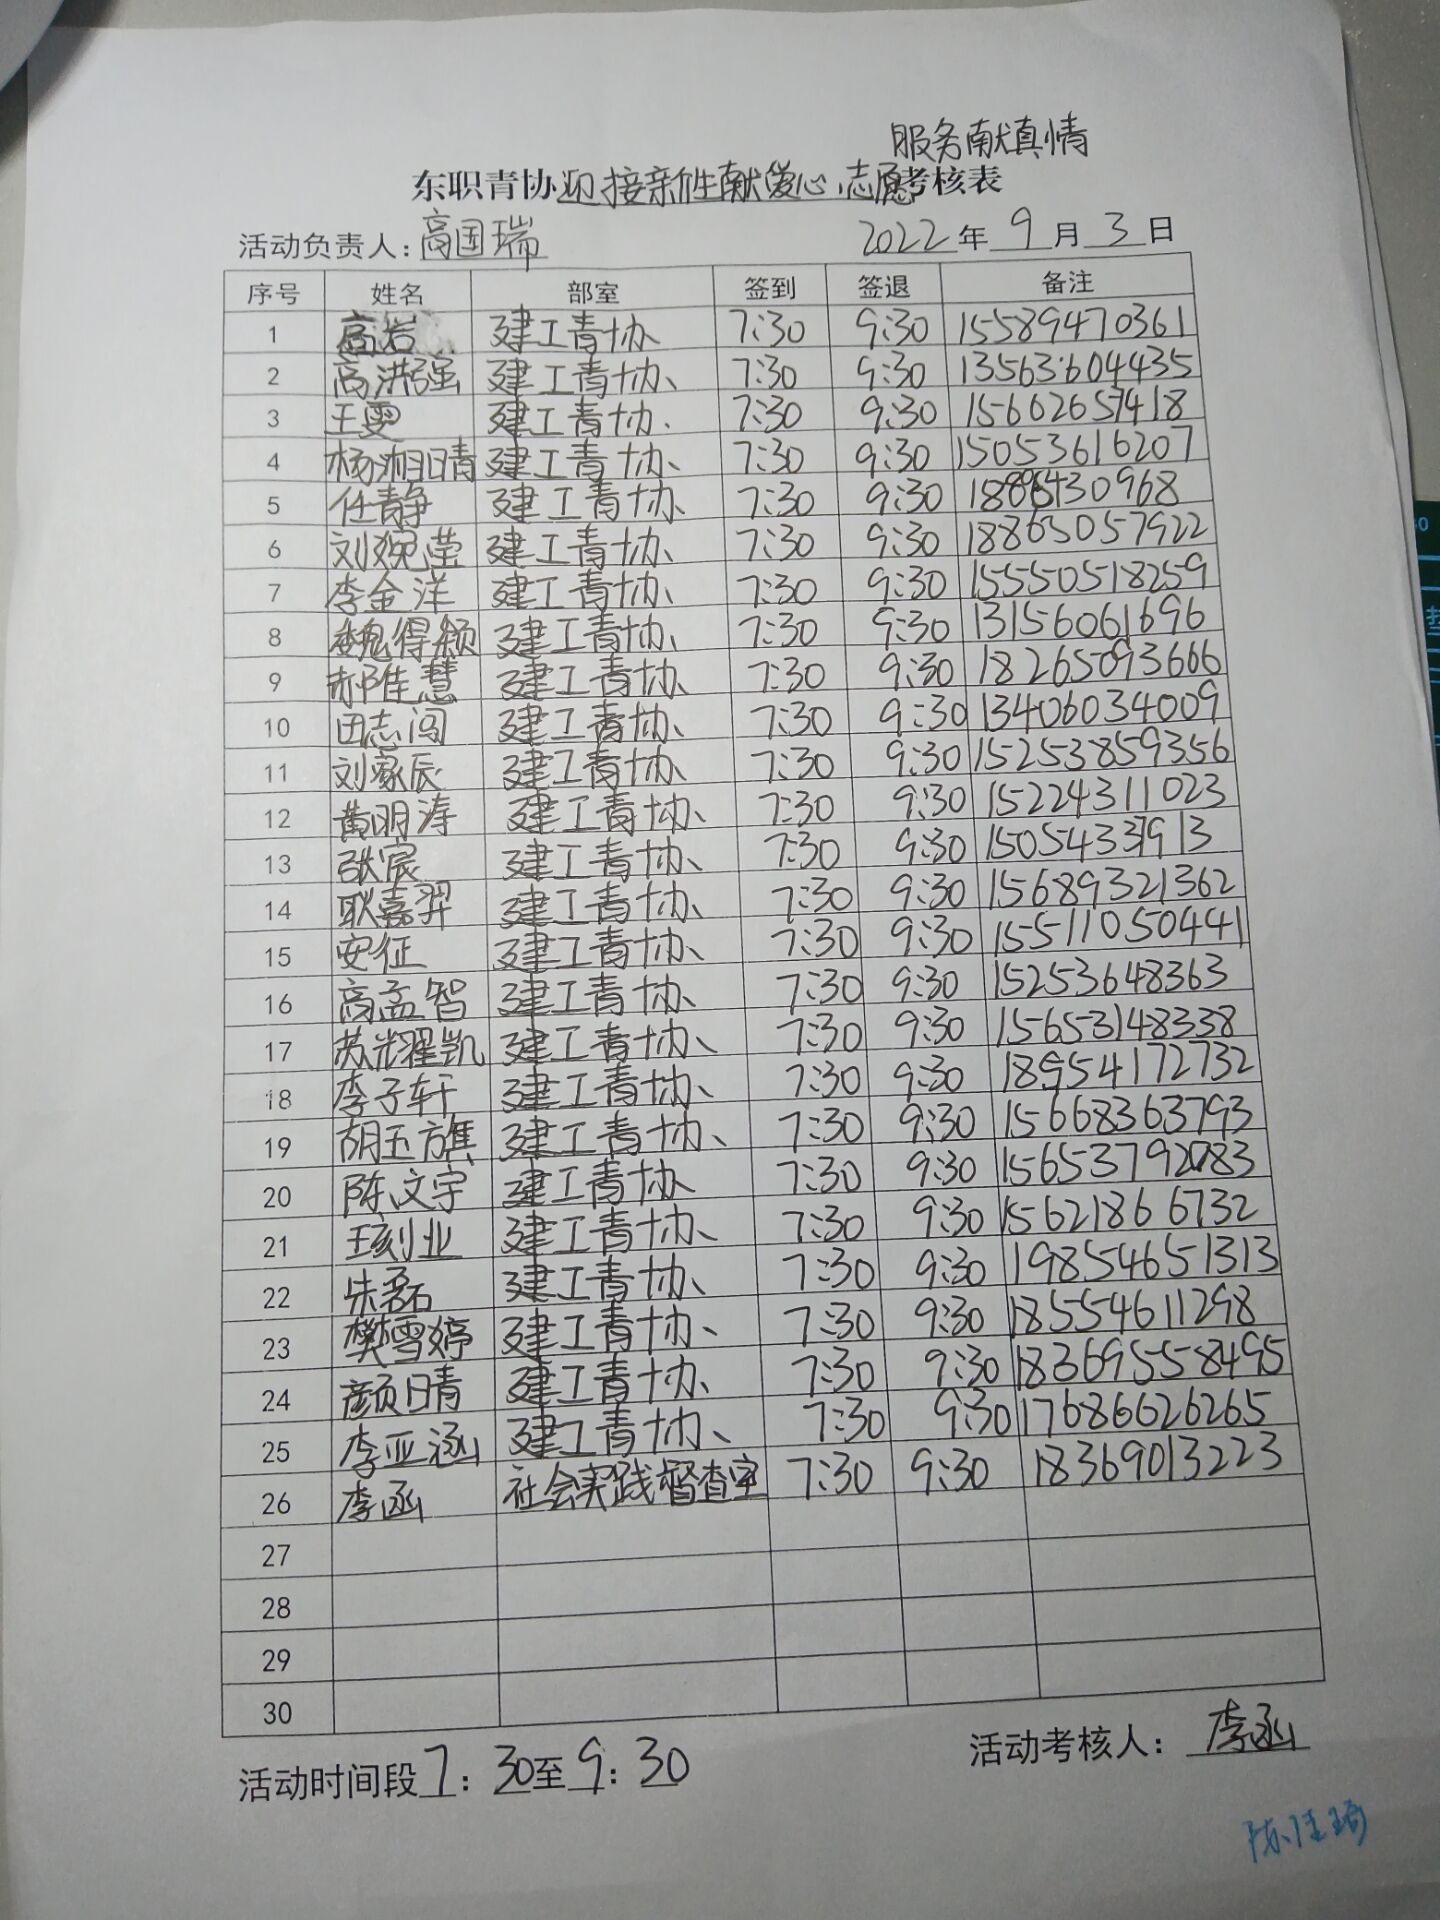 服务献真情
东职青协迎接新生献爱心,志愿考核表
活动负责人:高国瑞 2022年9月3日
序号 姓名 部室 签到 签退 备注
1 高岩 建工青协 7:30 9:30 15589470361
2 高洪强 建工青协、 7:30 9:30 13563604435
3 王雯 建工青协. 7:30 9:30 15662657418
4 杨湘晴 建工青协、 7:30 9:30 15053616207
5 任青静 建工青协、 7:30 9:30
6 刘婉莹 建工青协、 7:30 9:30 18865057922
7 李金洋 建工青协、 7:30 9:30 15550518259
8 魏得颖 建工青协、 7:30 9:30 13156061696
9 郝佳慧 建工青协、 7:30 9:30 18265093666
10 田志闯 建工青协、 7:30 9:30 13406034009
11 刘家辰 建工青协、 7:30 9:30 15253859356
12 黄明涛 建工青协、 7:30 9:30 15224311023
13 张宸 建工青协、 7:30 9:30 15054337913
14 耿嘉羿 建工青协、 7:30 9:30 15689321362
15 安征 建工青协、 7:30 9:30 15511050441
16 高孟智 建工青协、 7:30 9:30 15253648363
17 苏耀凯 建工青协、 7:30 9:30 15653148338
18 李子轩 建工青协、 7:30 9:30 18954172732
19 胡玉旗 建工青协、 7:30 9:30 15668363793
20 陈文宇 建工青协 7:30 9:30 15653792083
21 王刻业 建工青协、 7:30 9:30 15621866732
22 朱磊 建工青协、 7:30 9:30 19854651313
23 樊雪婷 建工青协、 7:30 9:30 18554611298
24 颜晴 建工青协、 7:30 9:30 183695558495
25 李亚涵 建工青协、 7:30 9:30 17686626265
26 李函 社会实践督查室 7:30 9:30 18369013223
27
28
29
30
活动时间段7:30至9:30 活动考核人:李函
陈佳琦